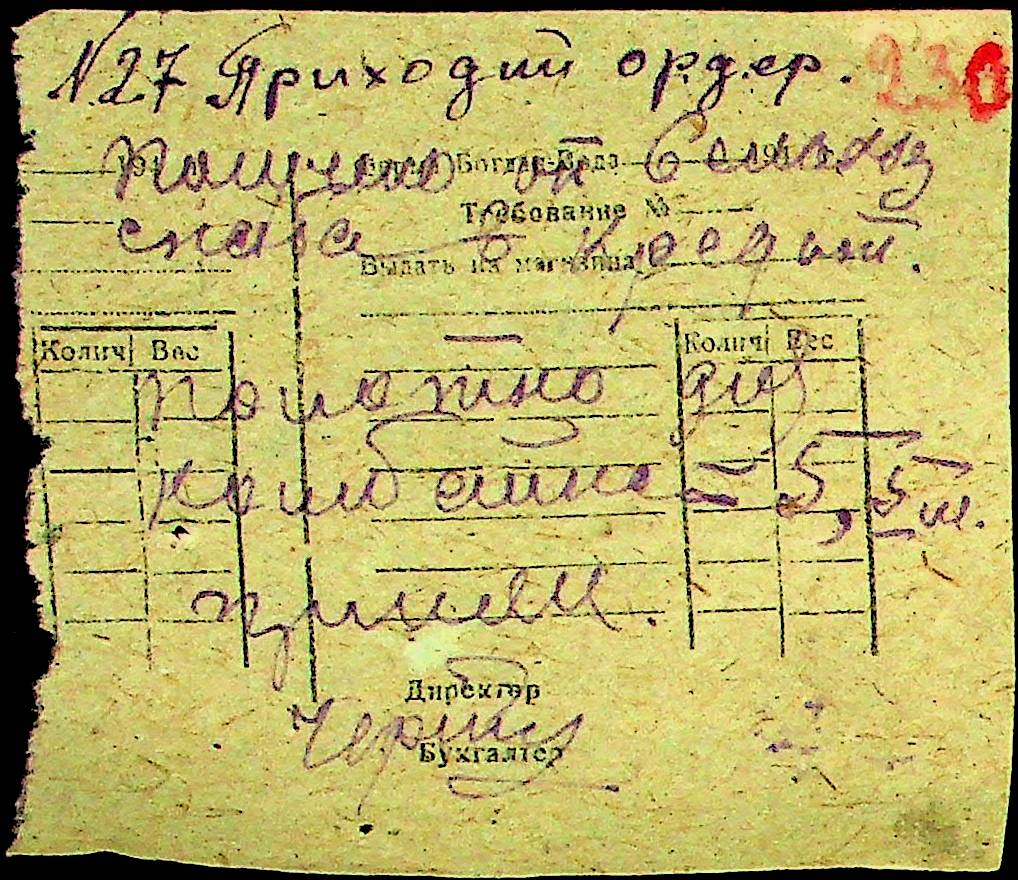 N 27 Приходий ордер. 230
Получено от Сельхоз
снаба в кредит.
Требование №
Выдать из магазина
Колич Вес Колич Вес
Полотно для
комбайна = 5,5 м.
принял
Директор
Бухгалтер